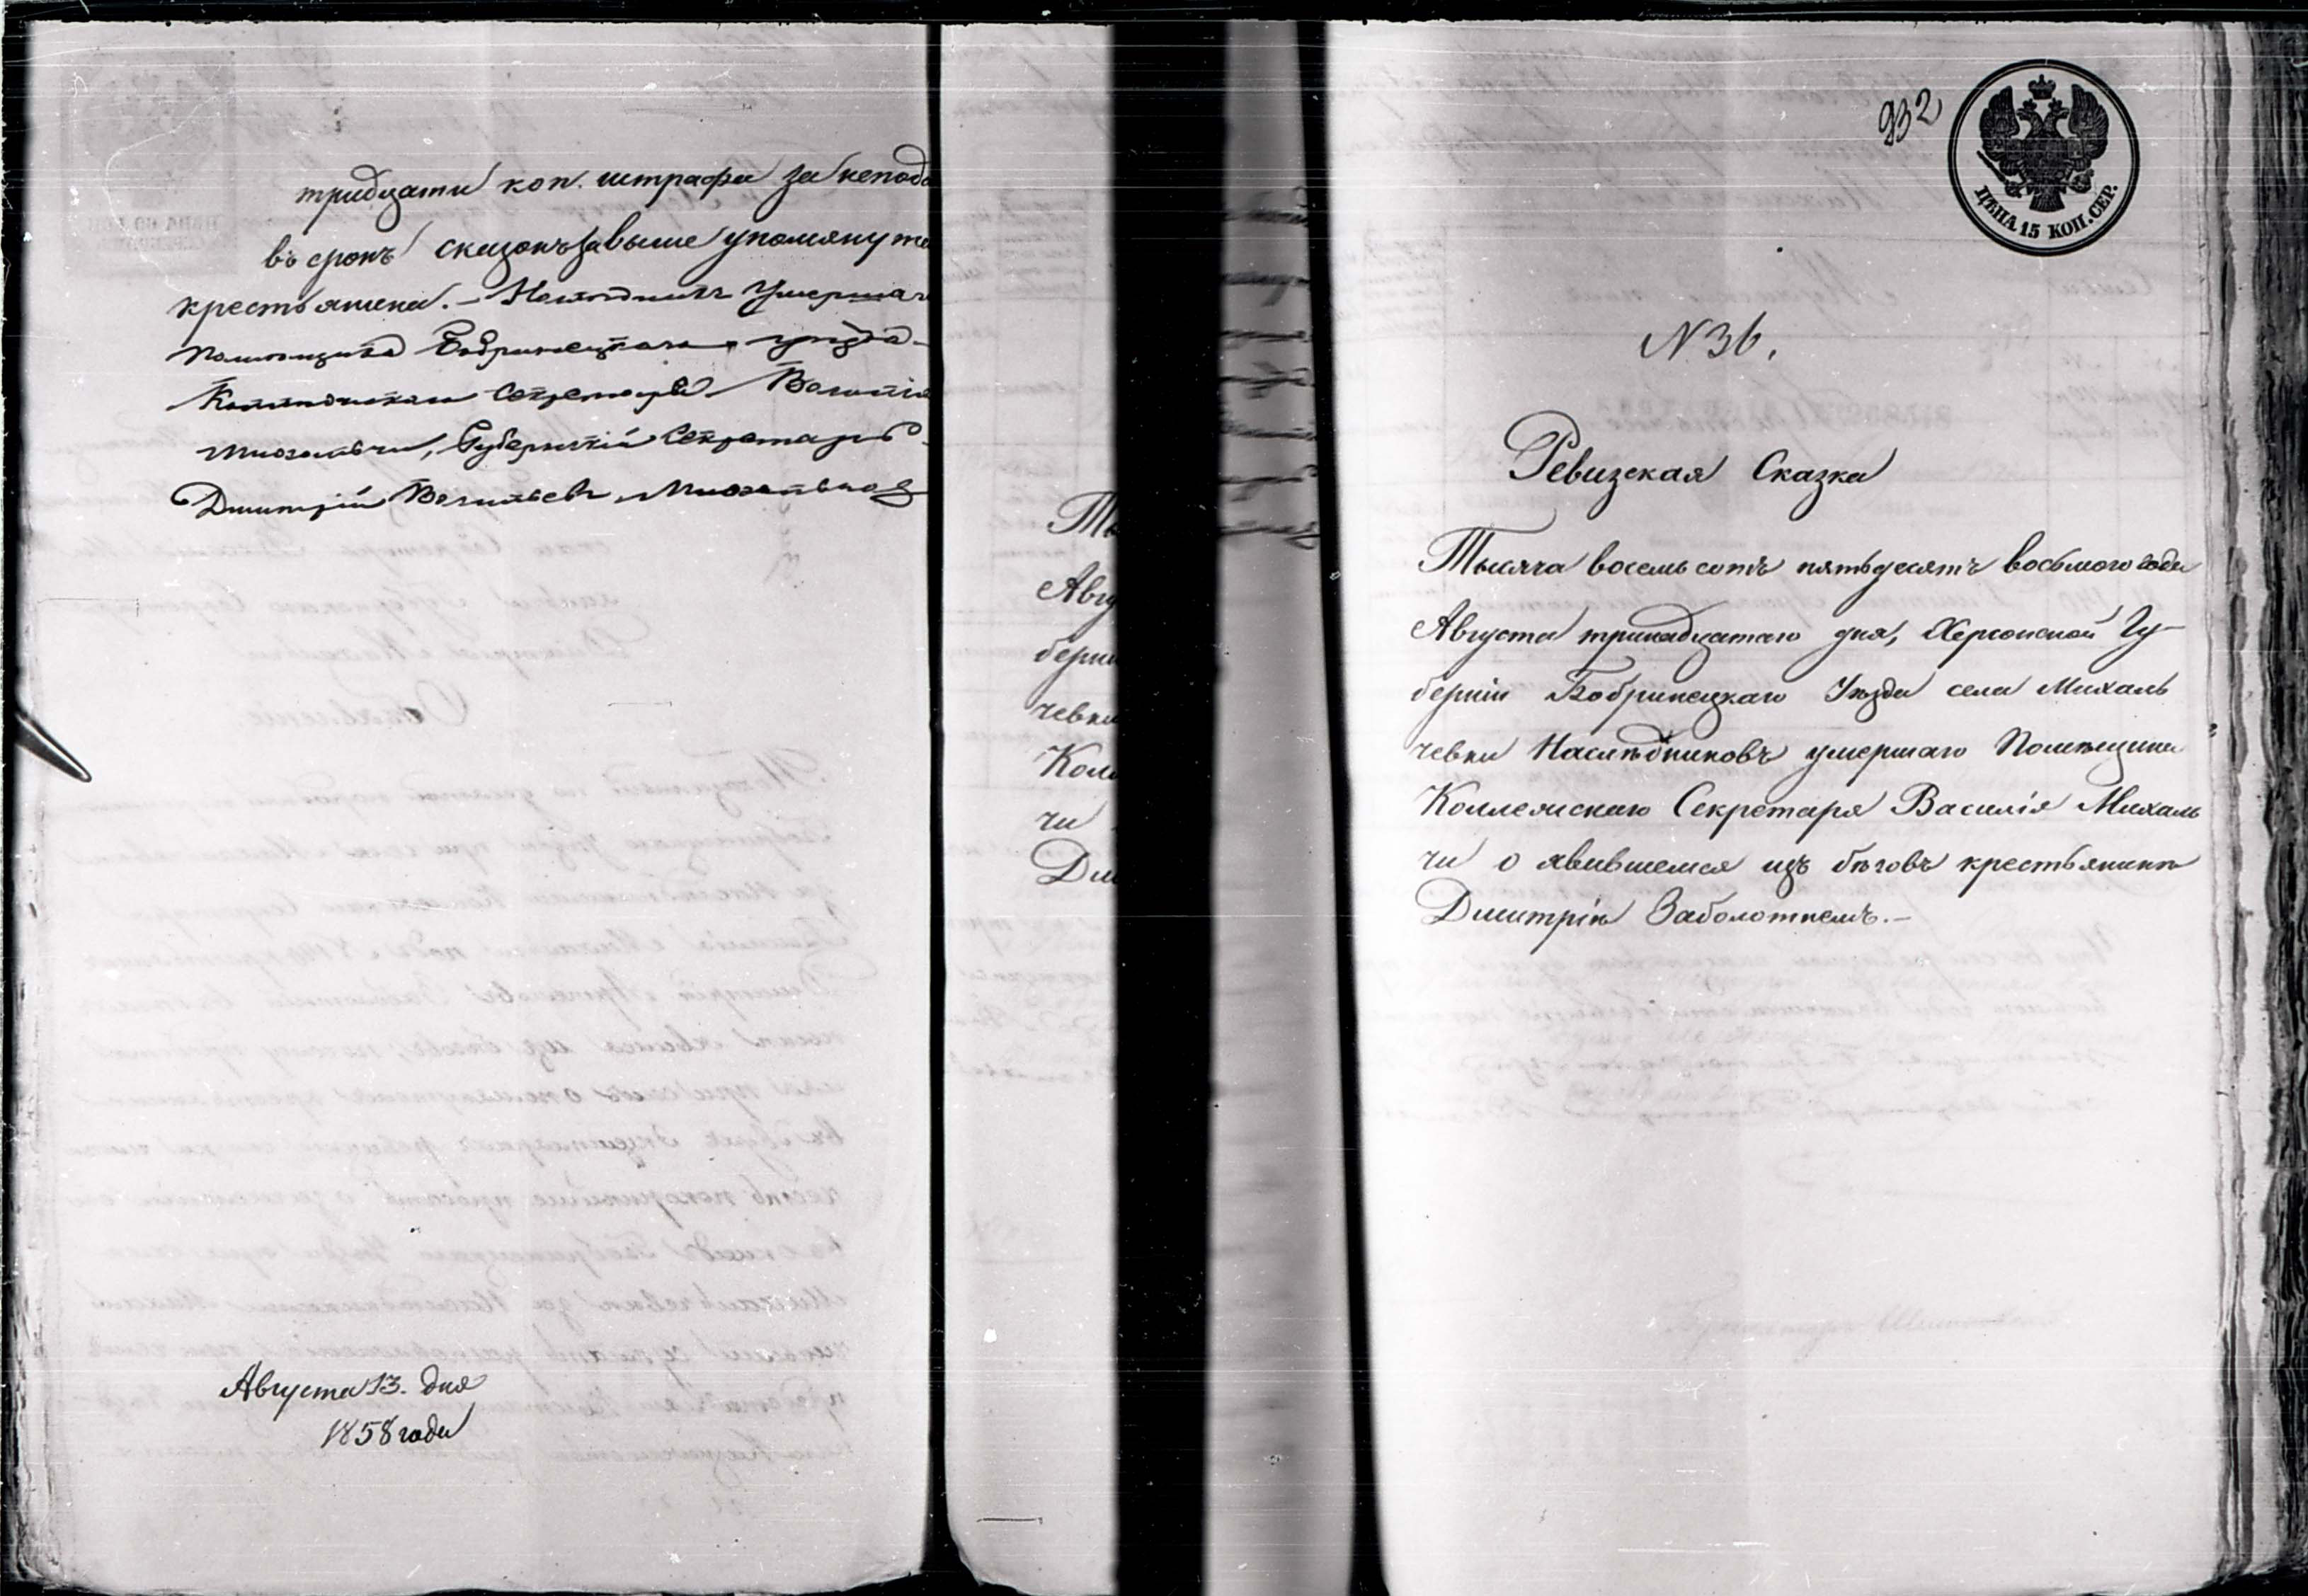 тридцати коп. штрафа за непода
въ срокъ сказокъ за выше упомянута
крестьянина. — Наследникъ Умершаг
помещика Бобринецкаго уезда
Коллежскаго Секретаря Василія
Михальчи, Губернскій Секретарь
Дмитрій Васильевъ Михальча
Августа 13. дня
1858 года
Ты
Авгу
берни
чевки
Колл
чи
Дми
932
ЦѢНА 15 КОП. СЕР.
N 36.
Ревизская Сказка
Тысяча восемь сотъ пятьдесятъ восьмого года
Августа тринадцатаго дня, Херсонской Гу-
берніи Бобринецкаго Уѣзда села Михаль
чевки Наслѣдниковъ умершаго Помѣщика
Коллежскаго Секретаря Василія Михаль
чи о явившемся изъ бѣговъ крестьянинѣ
Дмитріѣ Заболотнемъ. —